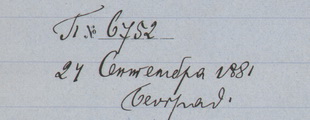 П № 6752
24 Септембра 1881
Београд.